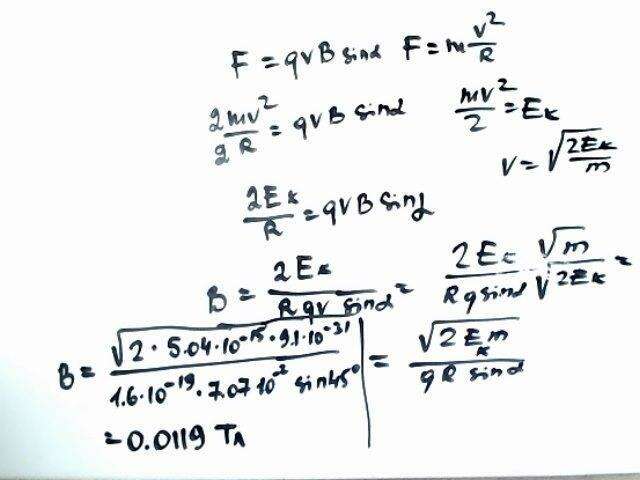 F = qvB sinα F = m v²/R
2mv²/2R = qvB sinα mv²/2 = Eₖ
v = √(2Eₖ/m)
2Eₖ/R = qvB sinα
B = 2Eₖ/(Rqv sinα) = 2Eₖ √m/(Rq sinα √2Eₖ) =
B = √(2 · 5.04·10⁻¹⁵ · 9.1·10⁻³¹)/(1.6·10⁻¹⁹ · 7.07 10⁻² sin45°) = √(2Eₖm)/(qR sinα)
= 0.0119 Тл